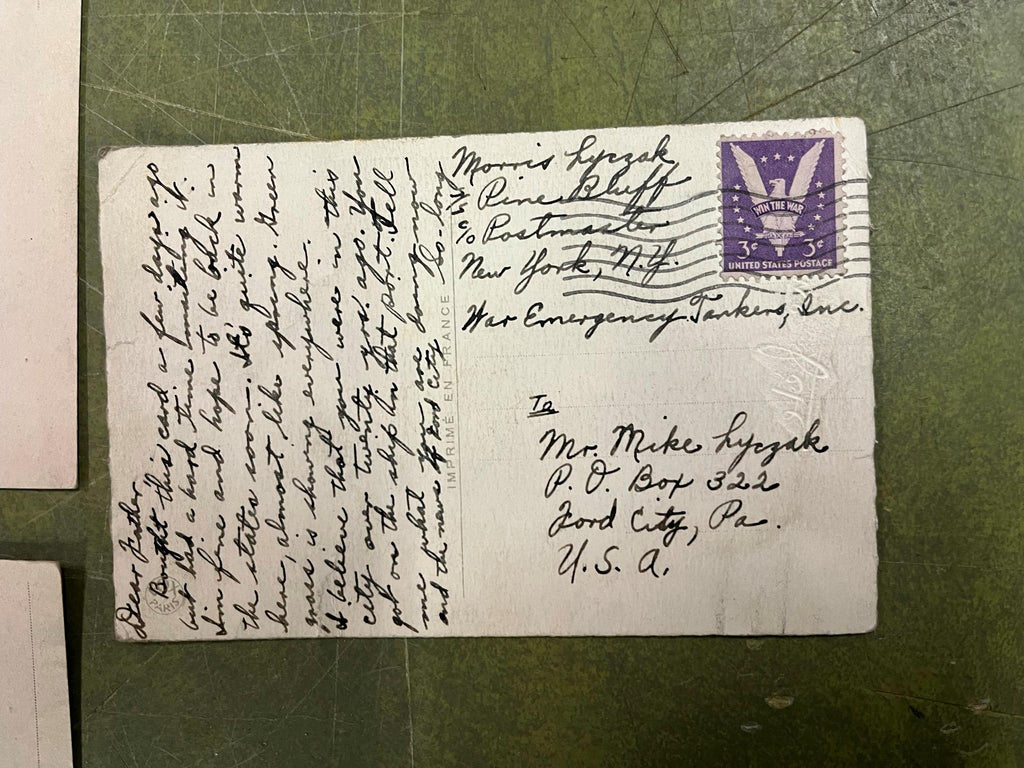 Dear Father,
Bought this card a few days ago
but had a hard time mailing it.
I'm fine and hope to be back in
the states soon. It's quite warm
here, almost like spring. Green
grass is showing everywhere.
I believe that you were in this
city over twenty yrs. ago. You
got on the ship in that port. Tell
me what you are doing now
and the news of Ford City. So-long
PARIS
IMPRIMÉ EN FRANCE
Morris Lyczak
Pine Bluff
c/o Postmaster
New York, N.Y.
War Emergency Tankers, Inc.
WIN THE WAR
3¢ 3¢
UNITED STATES POSTAGE
To
Mr. Mike Lyczak
P.O. Box 322
Ford City, Pa.
U.S.A.